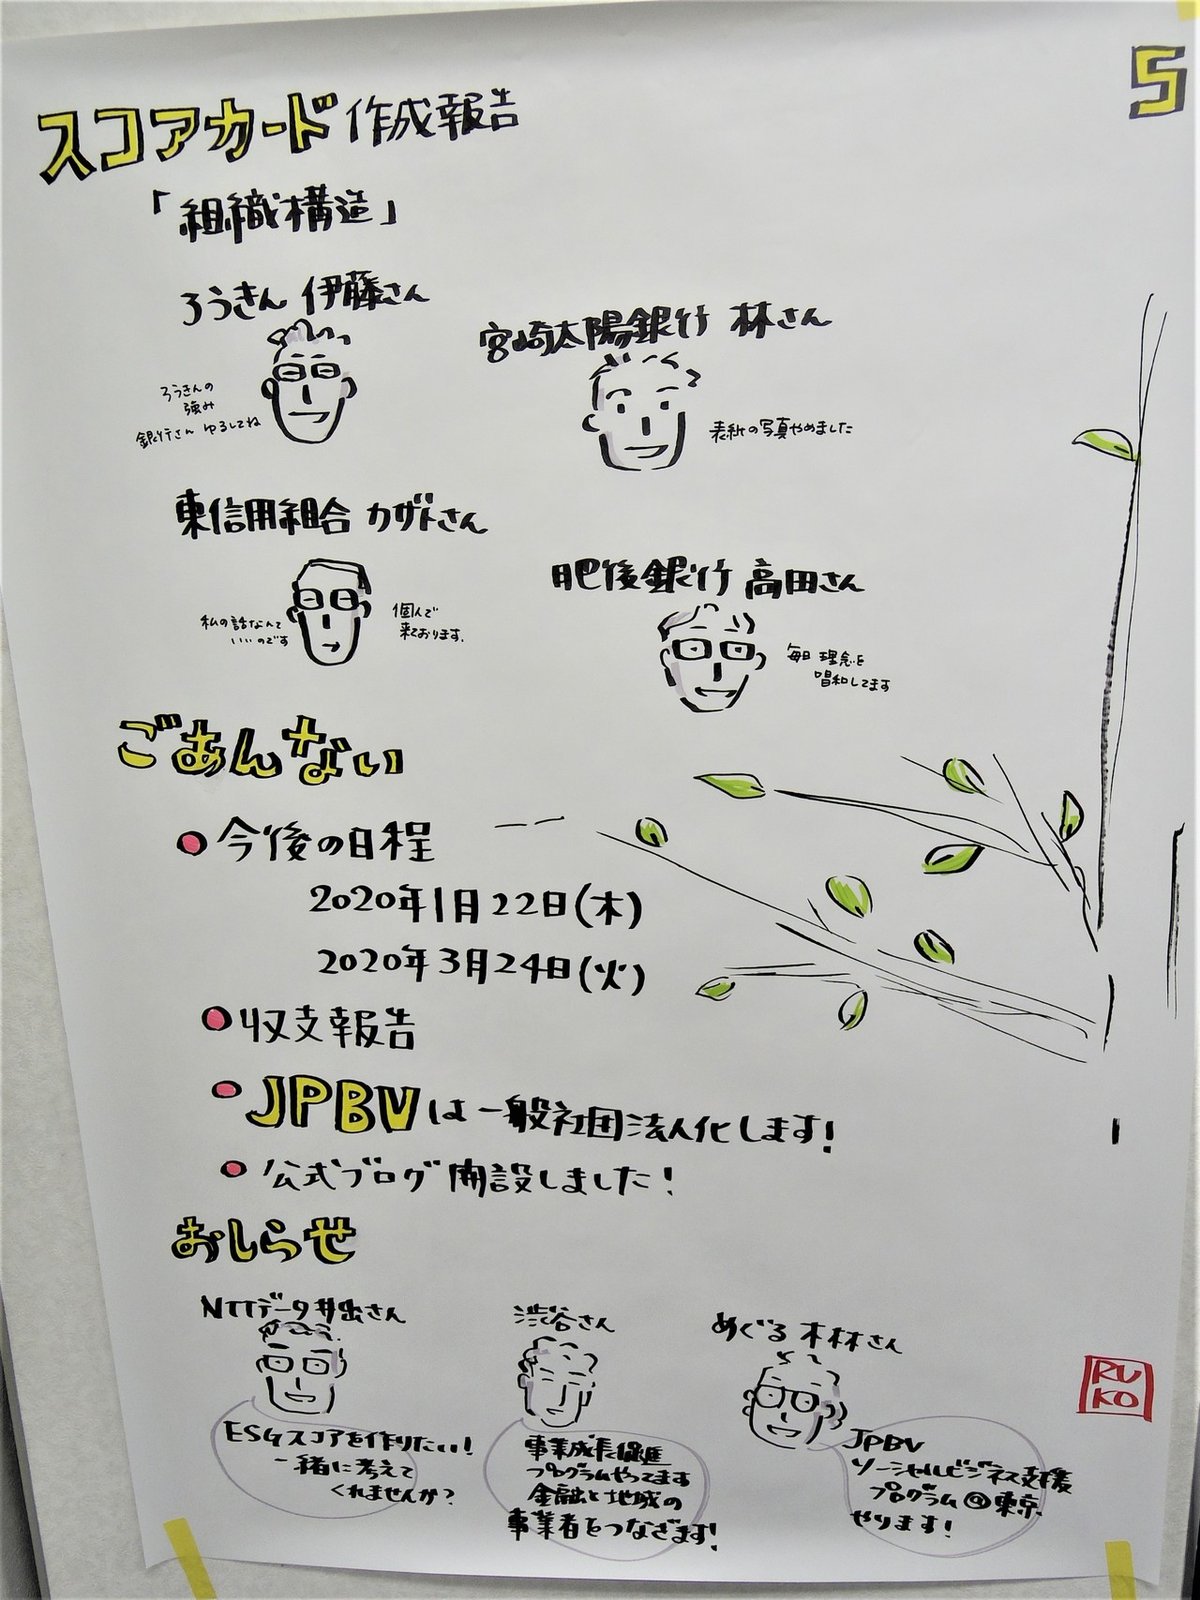 5
スコアカード 作成報告
「組織構造」
ろうきん 伊藤さん
ろうきんの
強み
銀行さん ゆるしてね
宮崎太陽銀行 林さん
表紙の写真やめました
東信用組合 カザトさん
私の話なんて
いいのです
個人で
来ております。
肥後銀行 高田さん
毎日 理念を
唱和してます
ごあんない
今後の日程
2020年1月22日(木)
2020年3月24日(火)
収支報告
JPBVは一般社団法人化します!
公式ブログ開設しました!
おしらせ
NTTデータ 井出さん
ESGスコアを作りたい!
一緒に考えて
くれませんか?
渋谷さん
事業成長促進
プログラムやってます
金融と地域の
事業者をつなぎます!
めぐる 木林さん
JPBV
ソーシャルビジネス支援
プログラム@東京
やります!
RU
KO